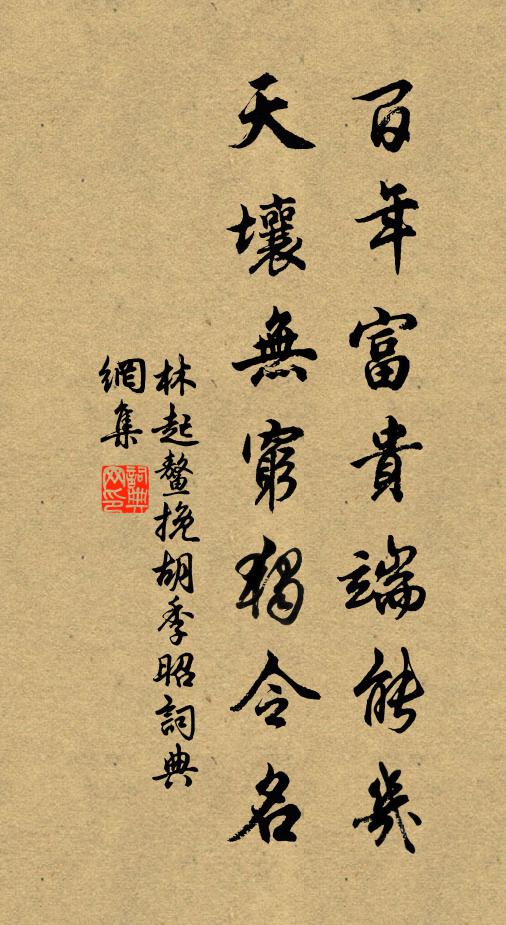 百年富貴端能幾
天壤無窮獨令名
林起鰲挽胡季昭詞典
網集
詞典
网印